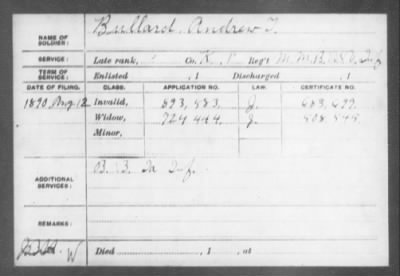 NAME OF SOLDIER: Bullard, Andrew T.
SERVICE: Late rank, Co. K, Reg't M. M. B.
TERM OF SERVICE: Enlisted , 1 Discharged , 1
DATE OF FILING. CLASS. APPLICATION NO. LAW. CERTIFICATE NO.
1890, Aug. 12 Invalid, 893,583. J. 683,
Widow, 724,444. J. 508,
Minor,
ADDITIONAL SERVICES: B. 3. Inf.
REMARKS:
W Died , 1 , at